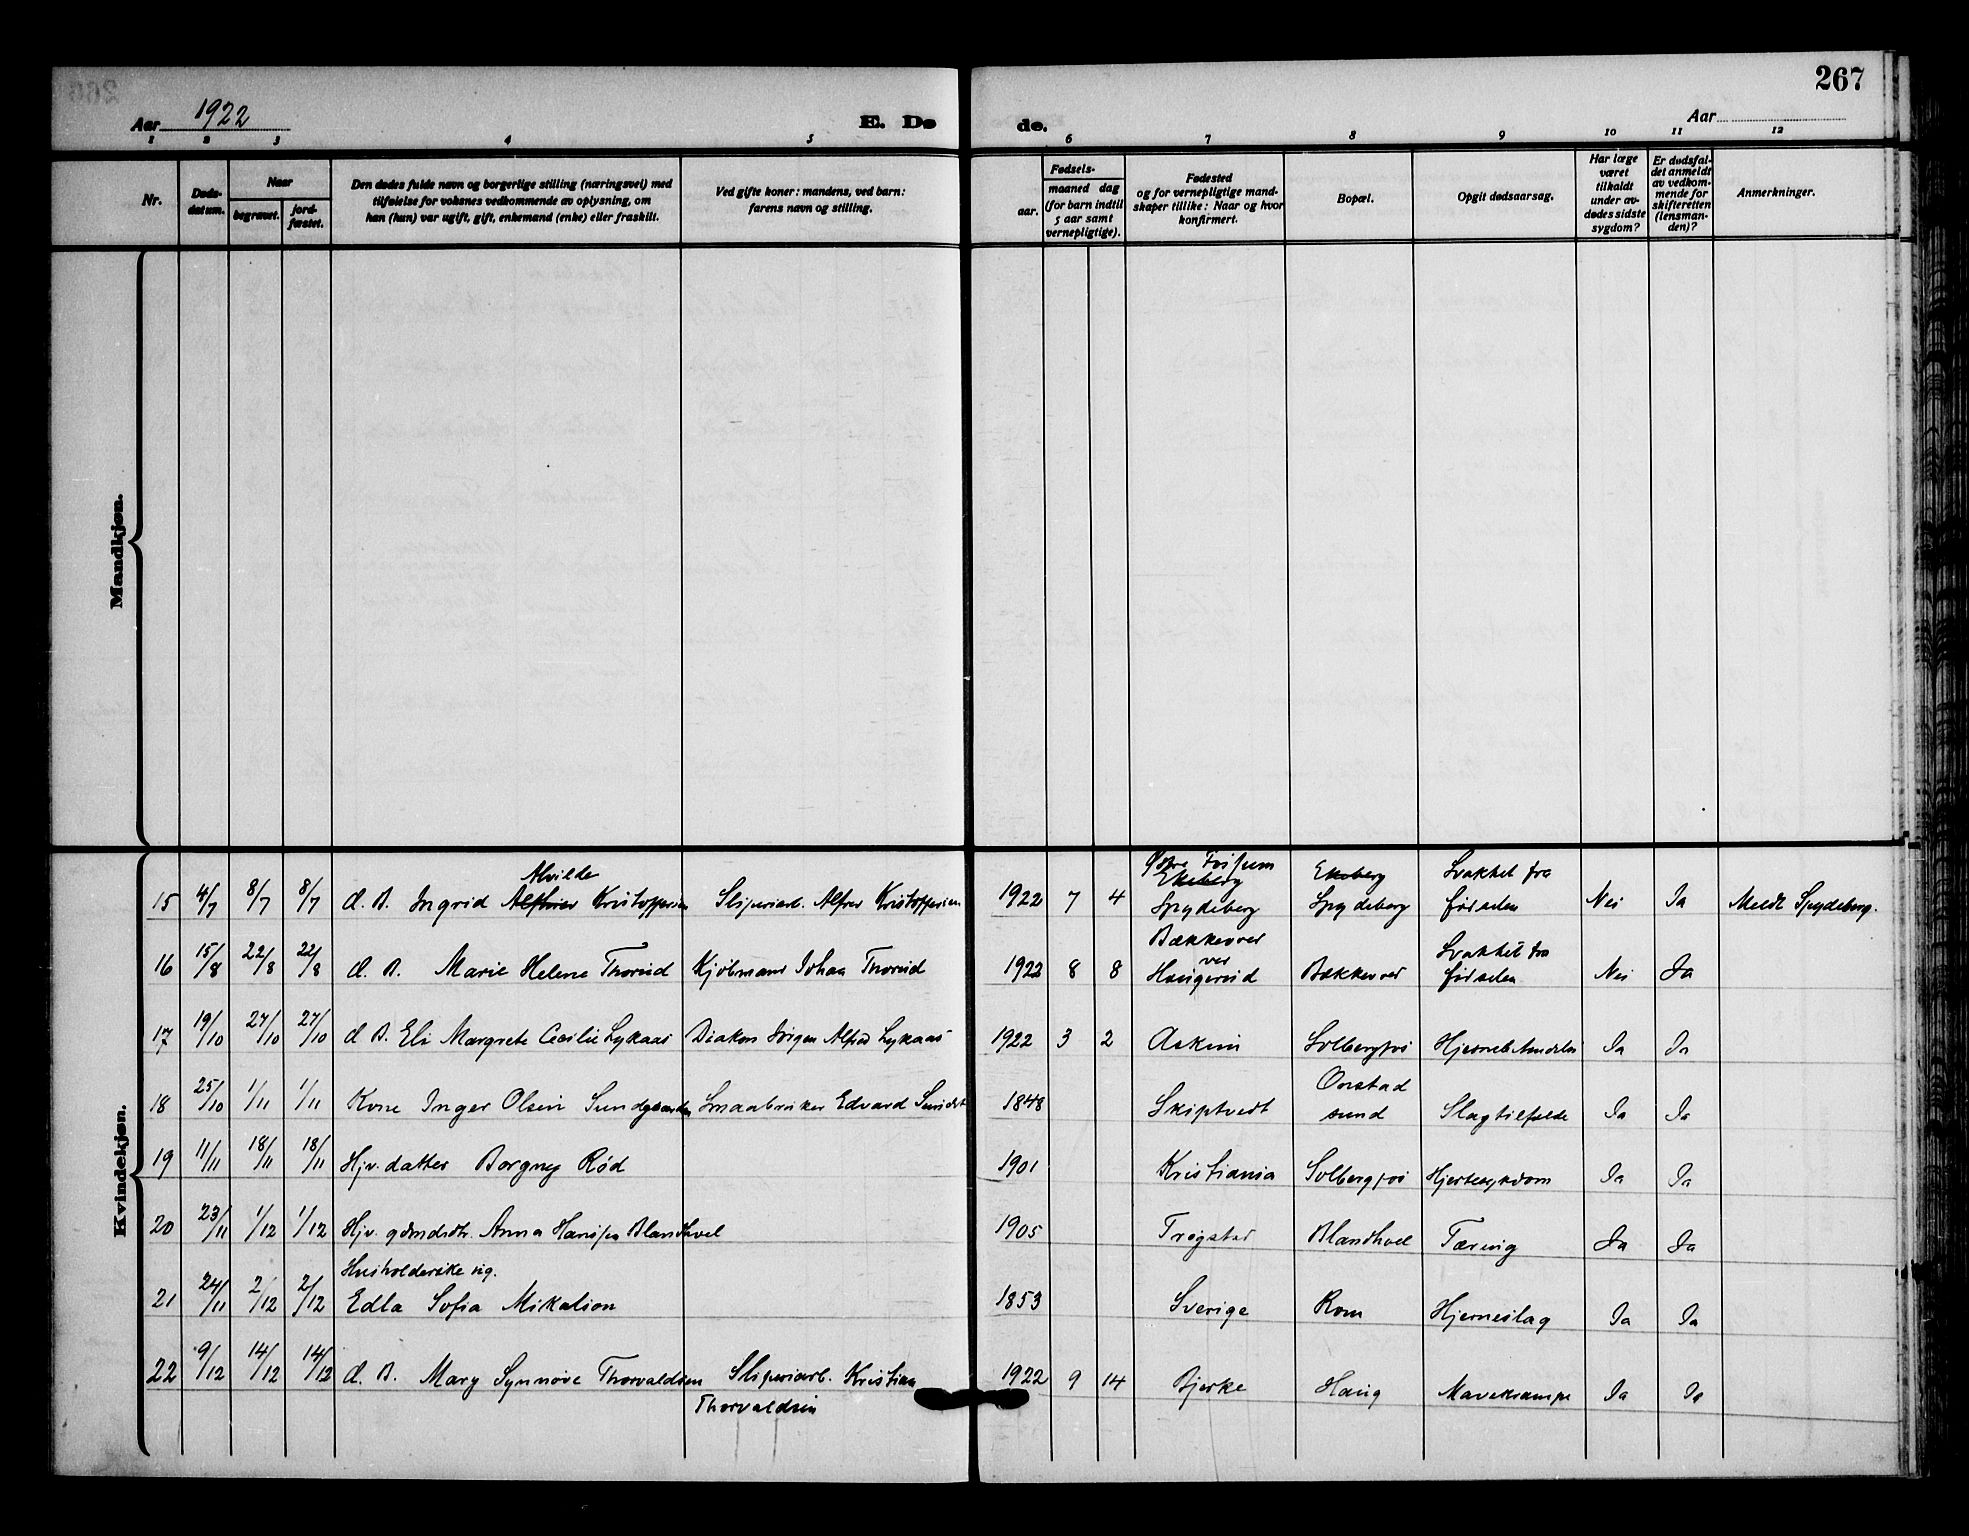 267
Aar 1922
E. Dø
de.
Aar
1 2 3 4 5 6 7 8 9 10 11 12
Nr.
Døds-
datum.
Naar
begravet.
jord-
fæstet.
Den dødes fulde navn og borgerlige stilling (næringsvei) med
tilføielse for voksnes vedkommende av oplysning, om
han (hun) var ugift, gift, enkemand (enke) eller fraskilt.
Ved gifte koner: mandens, ved barn:
farens navn og stilling.
Fødsels-
aar.
maaned dag
(for barn indtil
5 aar samt
vernepligtige).
Fødested
og for vernepligtige mand-
skaper tillike: Naar og hvor
konfirmert.
Bopæl.
Opgit dødsaarsag.
Har læge
været
tilkaldt
under av-
dødes sidste
sygdom?
Er dødsfal-
det anmeldt
av vedkom-
mende for
skifteretten
(lensman-
den)?
Anmerkninger.
Mandkjøn.
Kvindekjøn.
Alvilde Østre Ekeberg Svakhet fra
15 4/7 8/7 8/7 d. B. Ingrid Kristoffersen Sliperiarb. Alfred Kristoffersen 1922 7 4 Ekeberg
Spydeberg Spydeberg fødselen Nei Ja Meldt Spydeberg.
Bækkevar Svakhet fra
16 15/8 22/8 22/8 d. B. Marie Helene Thorud Kjøbmann Johan Thorud 1922 8 8 Haugerud Bækkevar fødselen Nei Ja
ver
17 19/10 27/10 27/10 d. B. Eli Margrete Cecilie Lykaas Diakon Jørgen Alfred Lykaas 1922 3 2 Askim Solbergfos Ja Ja
Onstad
18 25/10 1/11 1/11 Kone Inger Olsen Smaabruker Edvard 1848 Skiptvedt sund Slagtilfelde Ja Ja
19 11/11 18/11 18/11 Hjv. datter Borgny Rød 1901 Kristiania Solbergfos Hjertesykdom Ja Ja
20 23/11 1/12 1/12 Hjv. gdmdsdtr. Anna Hansen Blandhoel 1905 Trøgstad Blandhoel Tæring Ja Ja
Husholderske ug.
21 24/11 2/12 2/12 Edla Sofia 1853 Sverige Rom Hjerneslag Ja Ja
22 9/12 14/12 14/12 d. B. Mary Synnøve Thorvaldsen Sliperiarb. Kristian 1922 9 14 Bjerke Haug Mavekrampe Ja Ja
Thorvaldsen